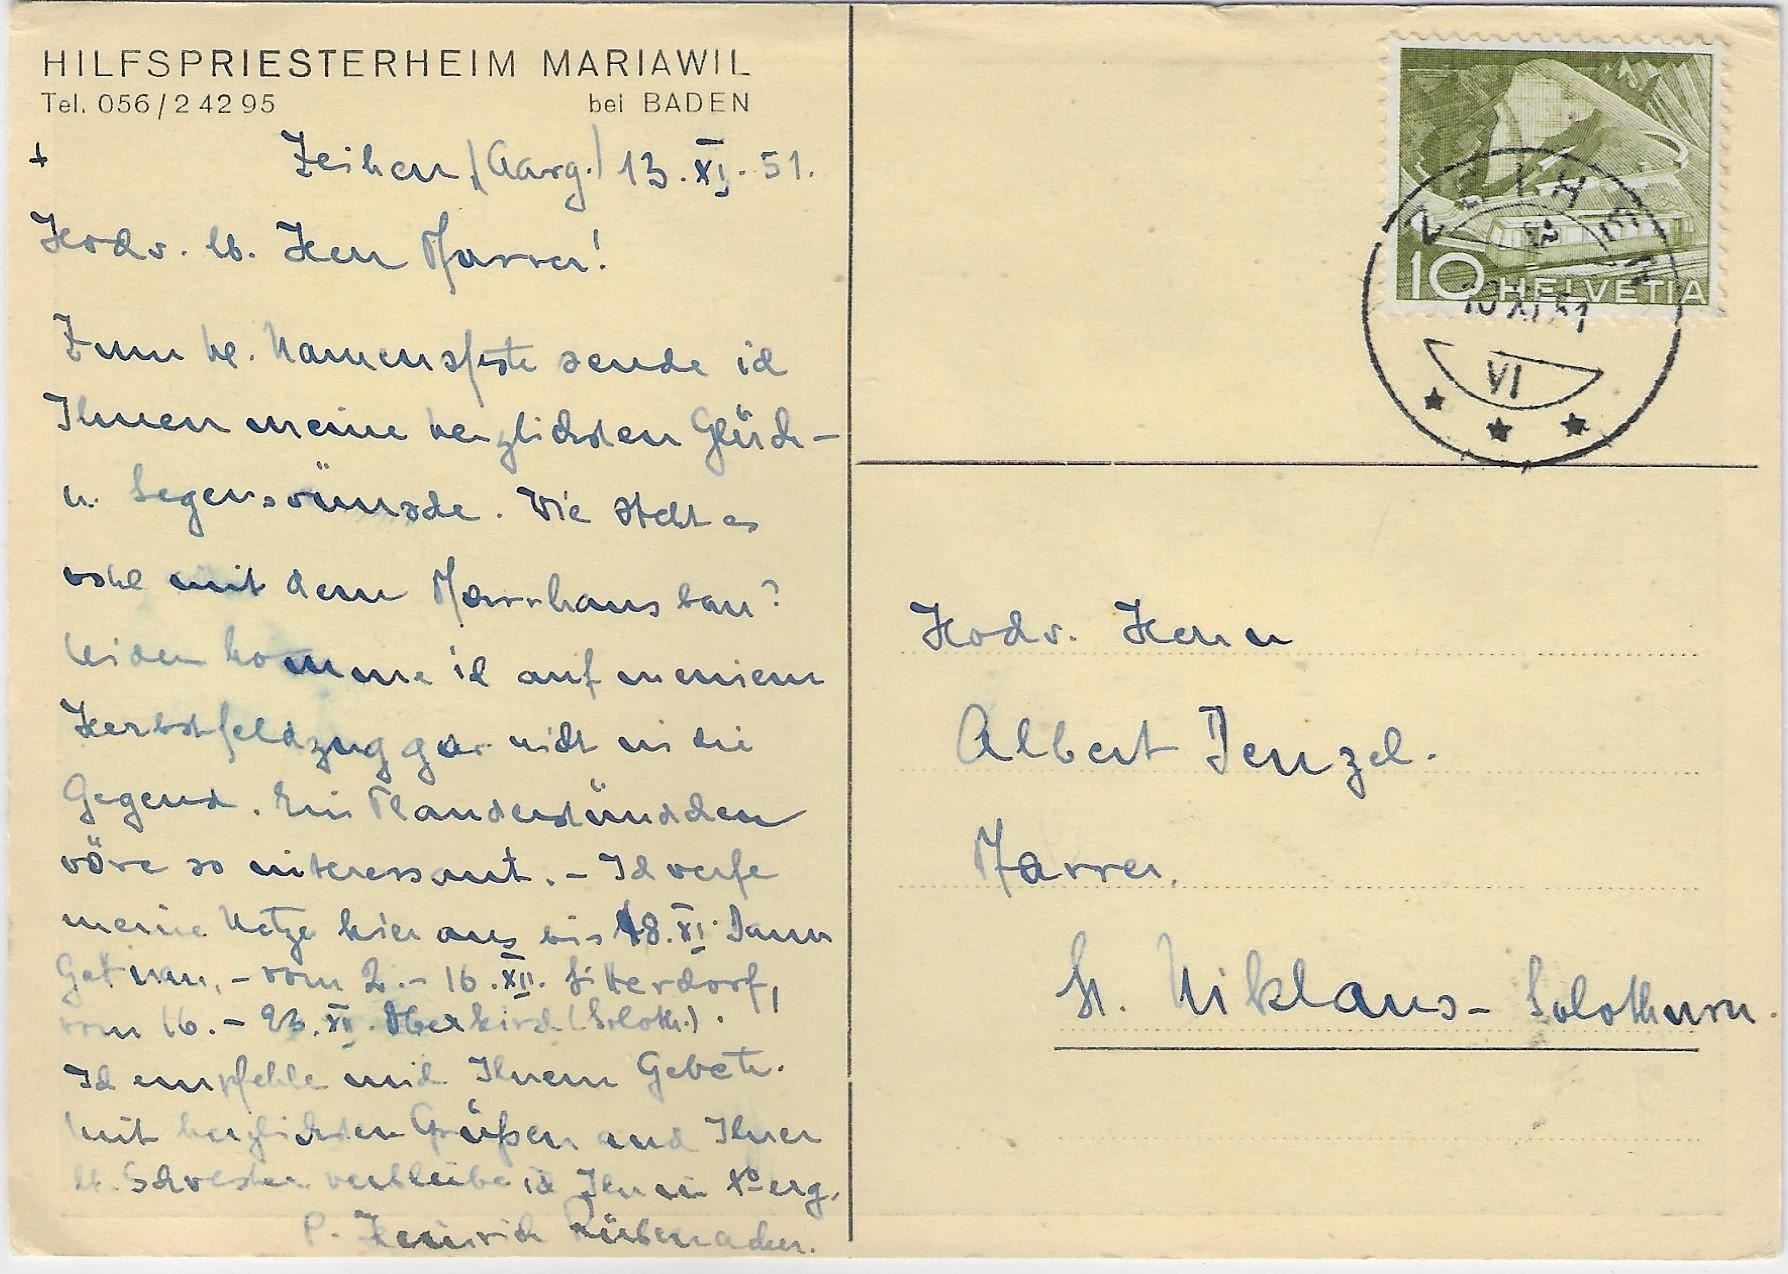 HILFSPRIESTERHEIM MARIAWIL
Tel. 056/2 42 95 bei BADEN
+ Zeihen (Aarg.) 13. XI. 51.
Hochw. lb. Herr Pfarrer!
Zum hl. Namensfeste sende ich
Ihnen meine herzlichsten Glück-
u. Segenswünsche. Wie steht es
wohl mit dem Pfarrhausbau?
Leider komme ich auf meinem
Herbstfeldzug gar nicht in die
Gegend. Ein Plauderstündchen
wäre so interessant. – Ich werfe
meine Netze hier aus bis 18. XI. Dann
Getnau, – vom 2. – 16. XII. Sitterdorf,
vom 16. – 23. XII. Oberkirch (Soloth.).
Ich empfehle mich Ihrem Gebete.
Mit herzlichsten Grüßen auch Ihrer
lb. Schwester verbleibe ich Ihr in Xo erg.
P. Heinrich Rübenacker.
10 HELVETIA
ZEIHEN
13 XI 51
VI
Hochw. Herrn
Albert Denzel.
Pfarrer.
St. Niklaus – Solothurn.